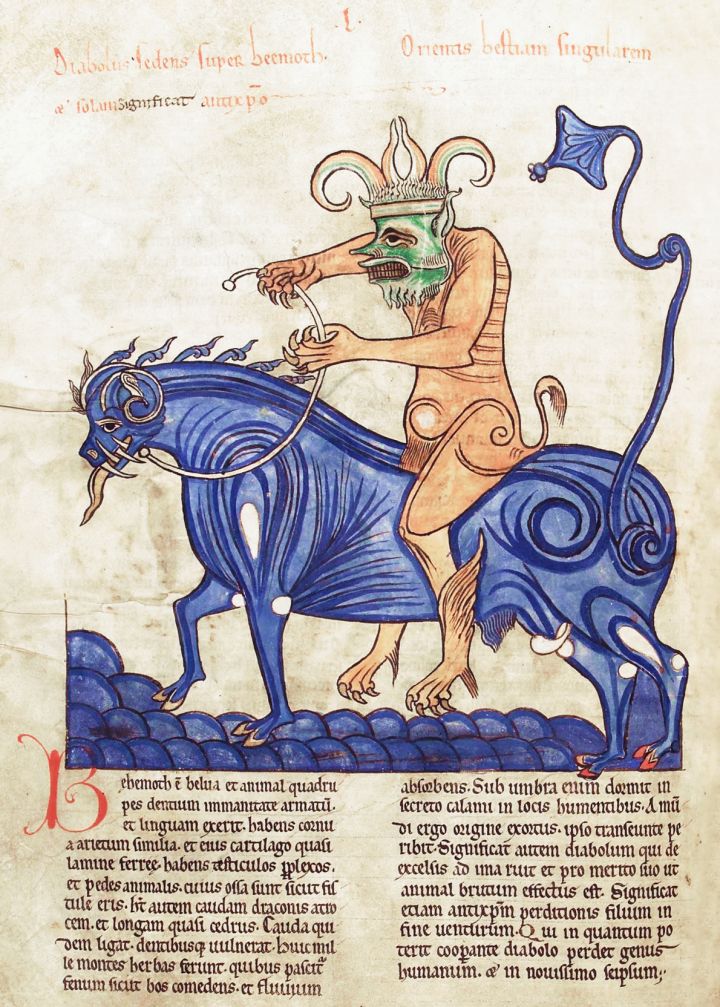 .L.
Diabolus sedens super beemoth. Orientis bestiam singularem
& solam significat antixp̄o
Behemoth ē belua et animal quadru
pes dentium immanitate armatū.
et linguam exerit. habens cornu
a arietum similia. et eius cartilago quasi
lamine ferree. habens testiculos ꝑplexos.
et pedes animalis. cuius ossa sunt sicut fis
tule eris. hr̄ autem caudam draconis atro
cem. et longam quasi cedrus. Cauda qui
dem ligat. dentibusq; uulnerat. huic mil
le montes herbas ferunt. quibus pascit᷑
fenum sicut bos comedens. et fluuium
absorbens. Sub umbra enim dormit in
secreto calami in locis humentibus. A mū
di ergo origine exortus. ipso transeunte pe
ribit. Significat autem diabolum qui de
excelsis ad ima ruit et pro merito suo ut
animal brutum effectus est. Significat
etiam antixp̄m perditionis filium in
fine uenturum. Qui in quantum po
terit cooꝑante diabolo perdet genus
humanum. & in nouissimo seipsum;